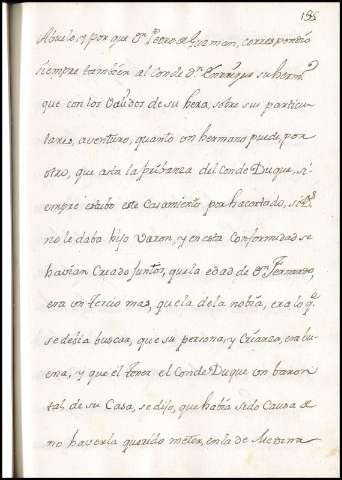 155
Abuelo, y por que Dn. Pedro de Guzman, correspondio
siempre tambien al Conde Dn. Enrrique su herm.o
que con los Validos de su hera, sobre sus particu-
lares, aventuro, quanto un hermano puede, por
otro, que asta la pribanza del Conde Duque, si-
empre estubo este Casamiento por hacertado, si D.s
no le daba hijo Varon, y en esta Conformidad se
havian Criado Juntos, que la edad de Dn. Fernando,
era un tercio mas, que la de la nobia, era lo q.e
se debia buscar, que su persona, y Crianza, era bu-
ena, y que el tener el Conde Duque un baron
tal de su Casa, se dijo, que habia sido Causa de
no haverla querido meter, en la de Medina